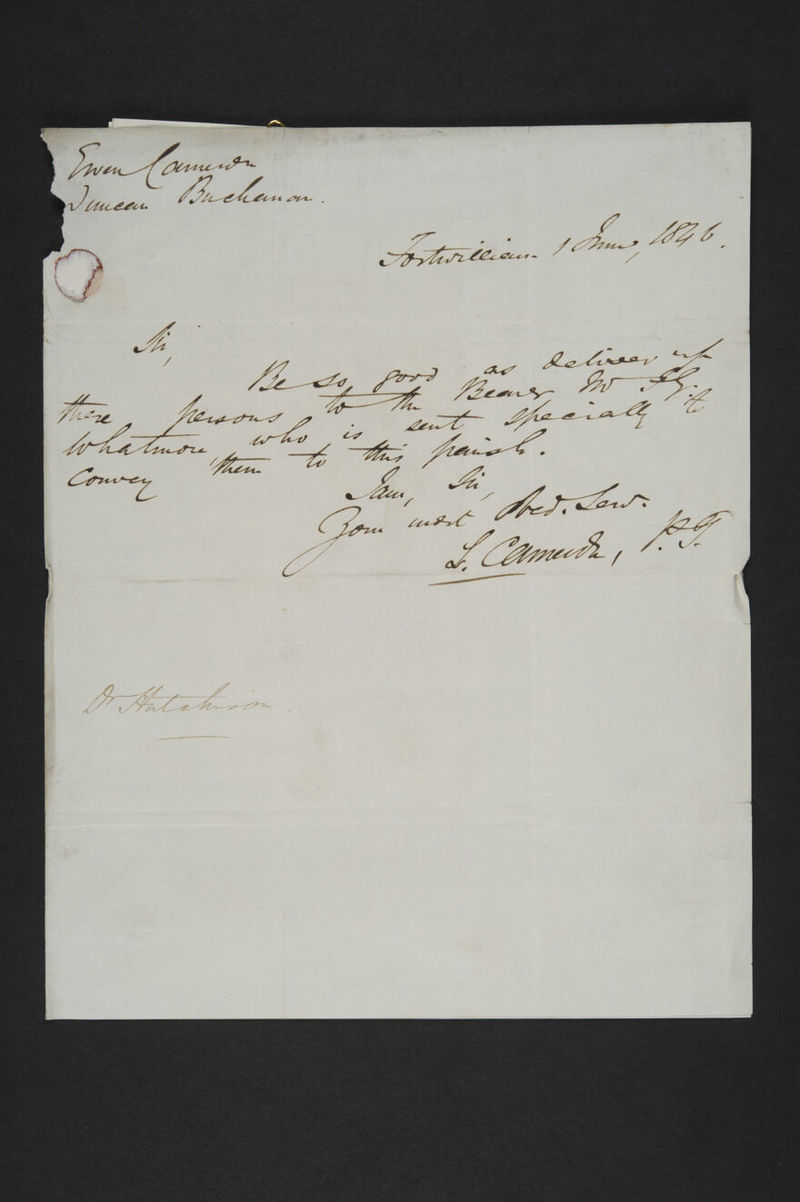 Ewen Cameron
Duncan Buchanan.
Fortwilliam 1 June, 1846.
Sir,
Be so good as deliver up
these persons to the Bearer Mr
Whatmore, who is sent specially to
convey them to this parish.
I am, Sir,
Your most Obed. Serv.
L. Cameron, P.I.
Dr Hutchison